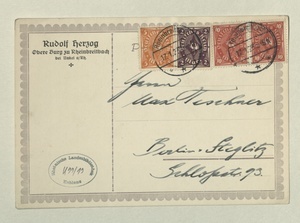 Rudolf Herzog
Obere Burg zu Rheinbreitbach
bei Unkel a/Rh.
Herrn
Max Teschner
Berlin-Steglitz
Schloßstr. 93.